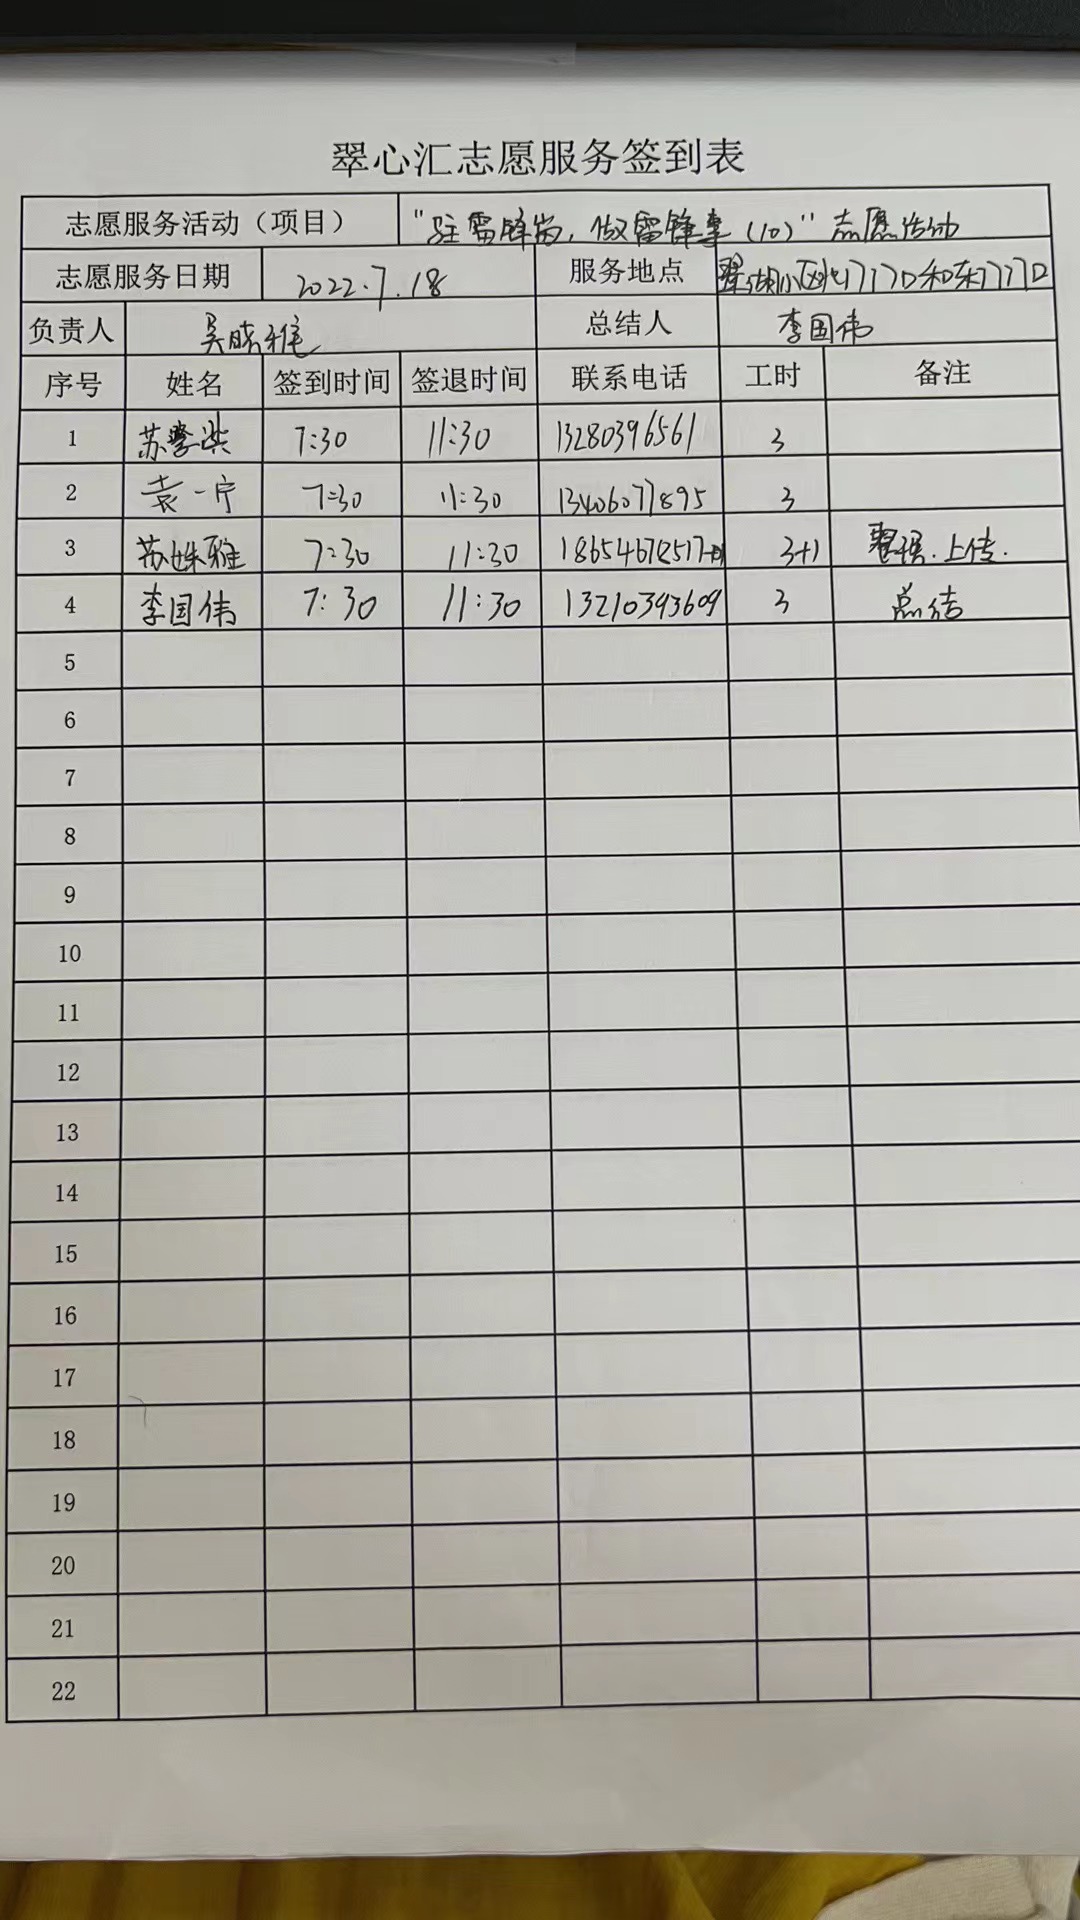 翠心汇志愿服务签到表
志愿服务活动（项目） "驻雷锋岗，做雷锋事（10）"志愿活动
志愿服务日期 2022.7.18 服务地点 翠湖小区北门门口和东门门口
负责人 吴晓雅 总结人 李国伟
序号 姓名 签到时间 签退时间 联系电话 工时 备注
1 苏学 7:30 11:30 13280396561 3
2 袁一宁 7:30 11:30 13406077895 3
3 苏姝雅 7:30 11:30 3+1 上传.
4 李国伟 7:30 11:30 13210393609 3 总结
5
6
7
8
9
10
11
12
13
14
15
16
17
18
19
20
21
22